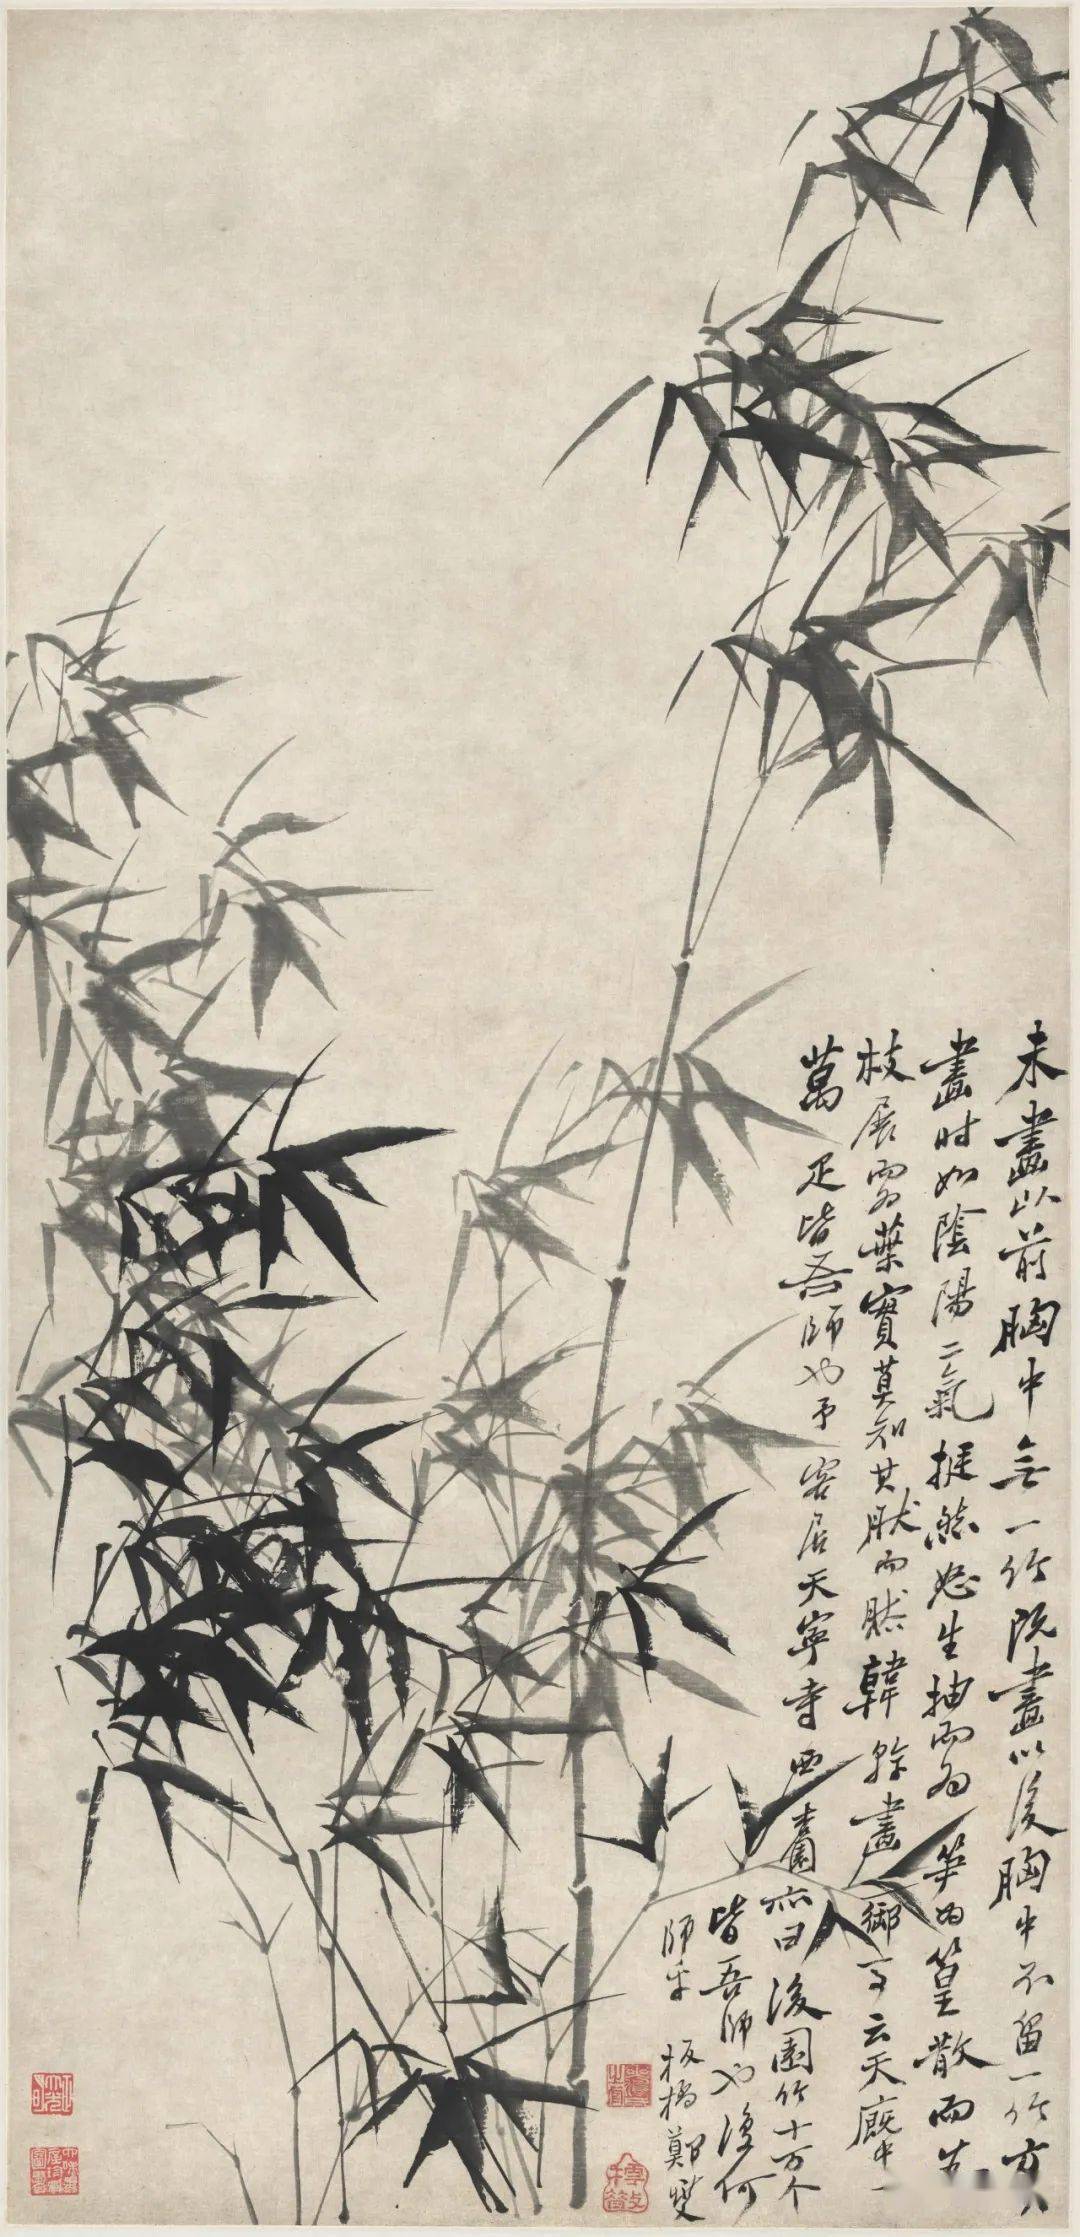 未畫以前胸中無一竹既畫以後胸中不留一竹方
畫時如陰陽二氣挺然怒生抽而為筍為篁散而為
枝展而為葉實莫知其然而然韓幹畫御馬云天廐中十
萬疋皆吾師也予客居天寧寺西杏園亦曰後園竹十万个
皆吾師也復何
師乎 板橋鄭燮